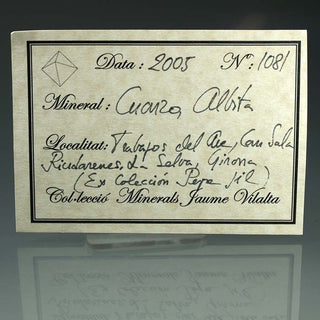 Data: 2005 Nº: 1081
Mineral: Cuarzo, Albita
Localitat: Trabajos del Ave, Can Sala
Riudarenes, La Selva, Girona
(Ex Colección Pepe Gil)
Col·lecció Minerals Jaume Vilalta